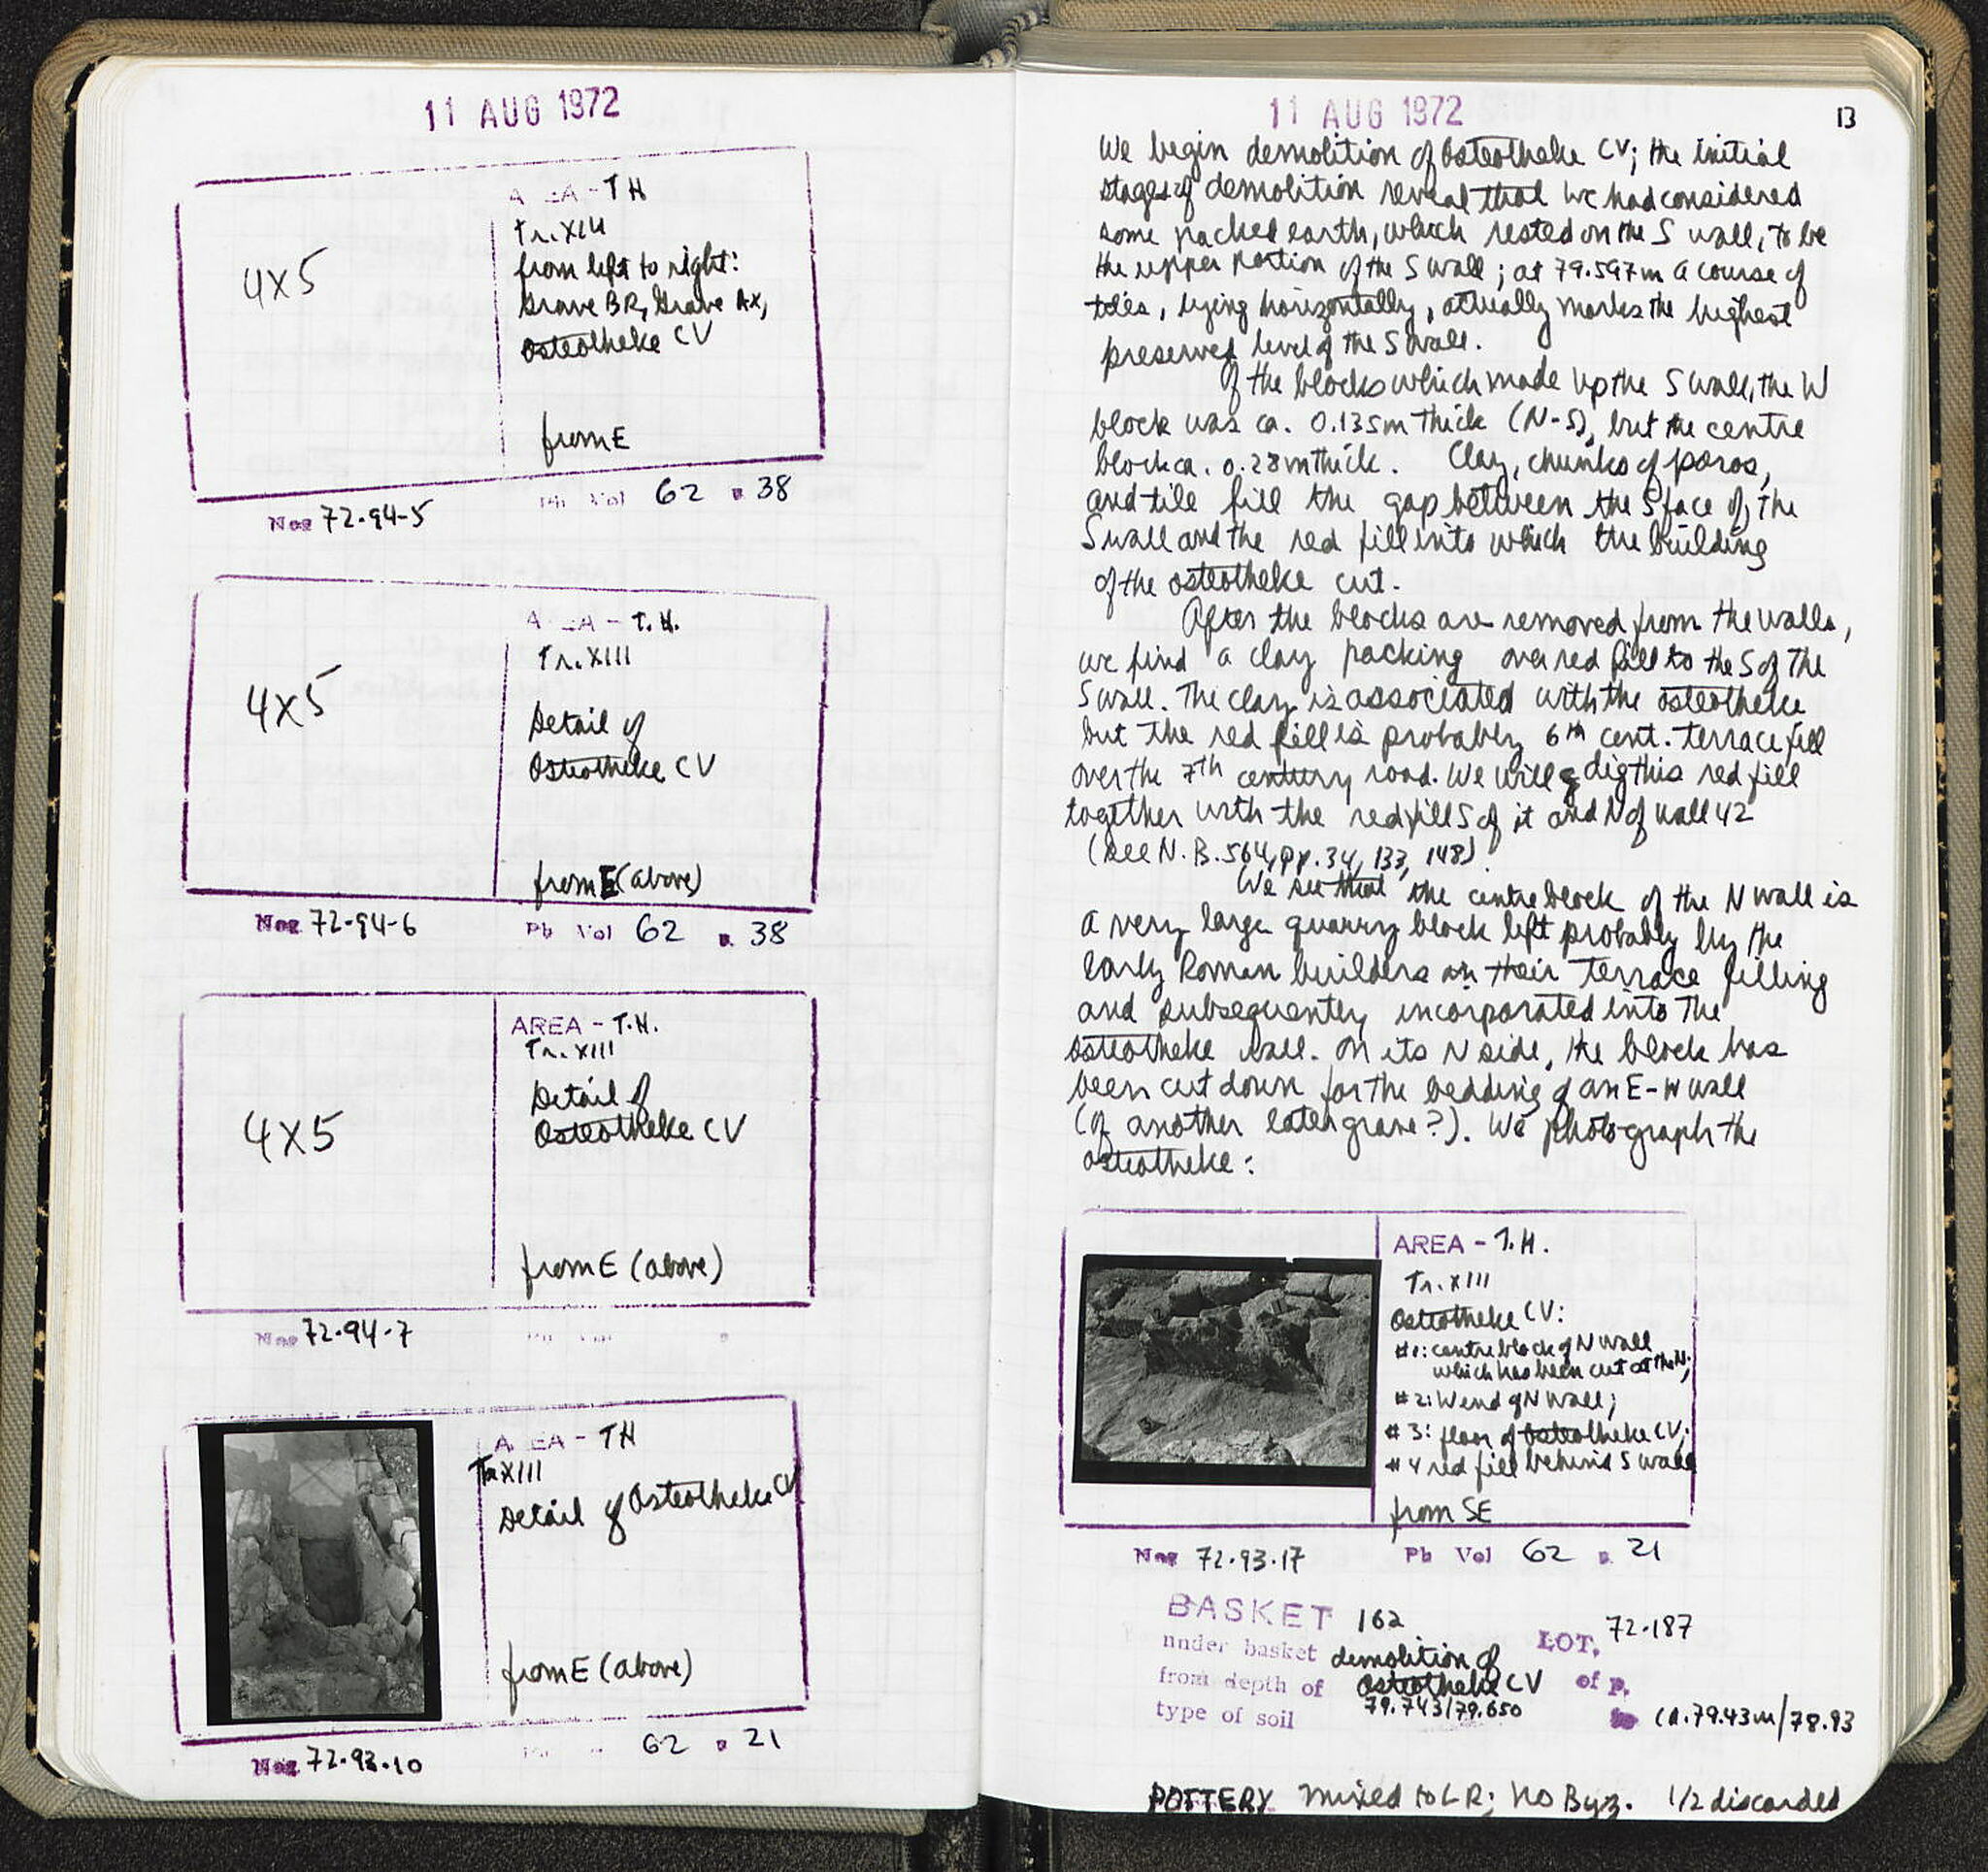 11 AUG 1972
AREA - TH
Tr. XIII
4x5
from left to right:
Grave BR, Grave AX,
Osteotheke CV
from E
Neg 72-94-5
Ph Vol 62 p. 38
AREA - T.H.
Tr. XIII
4x5
Detail of
Osteotheke CV
from E (above)
Neg 72-94-6
Ph Vol 62 p. 38
AREA - T.H.
Tr. XIII
4x5
Detail of
Osteotheke CV
from E (above)
Neg 72-94-7
AREA - TH
Tr XIII
Detail of Osteotheke CV
from E (above)
Neg 72-93-10
62 p 21
11 AUG 1972
13
We begin demolition of Osteotheke CV; the initial
stages of demolition reveal that we had considered
some packed earth, which rested on the S wall, to be
the upper portion of the S wall; at 79.597m a course of
tiles, lying horizontally, actually marks the highest
preserved level of the S wall.
Of the blocks which made up the S wall, the W
block was ca. 0.135m thick (N-S), but the centre
block ca. 0.28m thick. Clay, chunks of poros,
and tile fill the gap between the S face of the
S wall and the red fill into which the building
of the osteotheke cut.
After the blocks are removed from the walls,
we find a clay packing over red fill to the S of the
S wall. The clay is associated with the osteotheke
but the red fill is probably 6th cent. terrace fill
over the 7th century road. We will dig this red fill
together with the red fill S of it and N of wall 42
(see N.B. 564, pp. 34, 133, 148)
We see that the centre block of the N wall is
a very large quarry block left probably by the
early Roman builders in their terrace filling
and subsequently incorporated into the
osteotheke wall. On its N side, the block has
been cut down for the bedding of an E-W wall
(of another later grave?). We photograph the
osteotheke:
AREA - T.H.
Tr. XIII
Osteotheke CV:
#1: centre block of N wall
which has been cut at the N;
#2: W end of N wall;
#3: floor of Osteotheke CV;
#4 red fill behind S wall
from SE
Neg 72-93-17
Ph Vol 62 p. 21
BASKET 162
LOT. 72-187
under basket demolition of
from depth of Osteotheke CV of p.
79.743/79.650
type of soil
ca. 79.43m/78.93
POTTERY mixed to LR; no Byz. 1/2 discarded